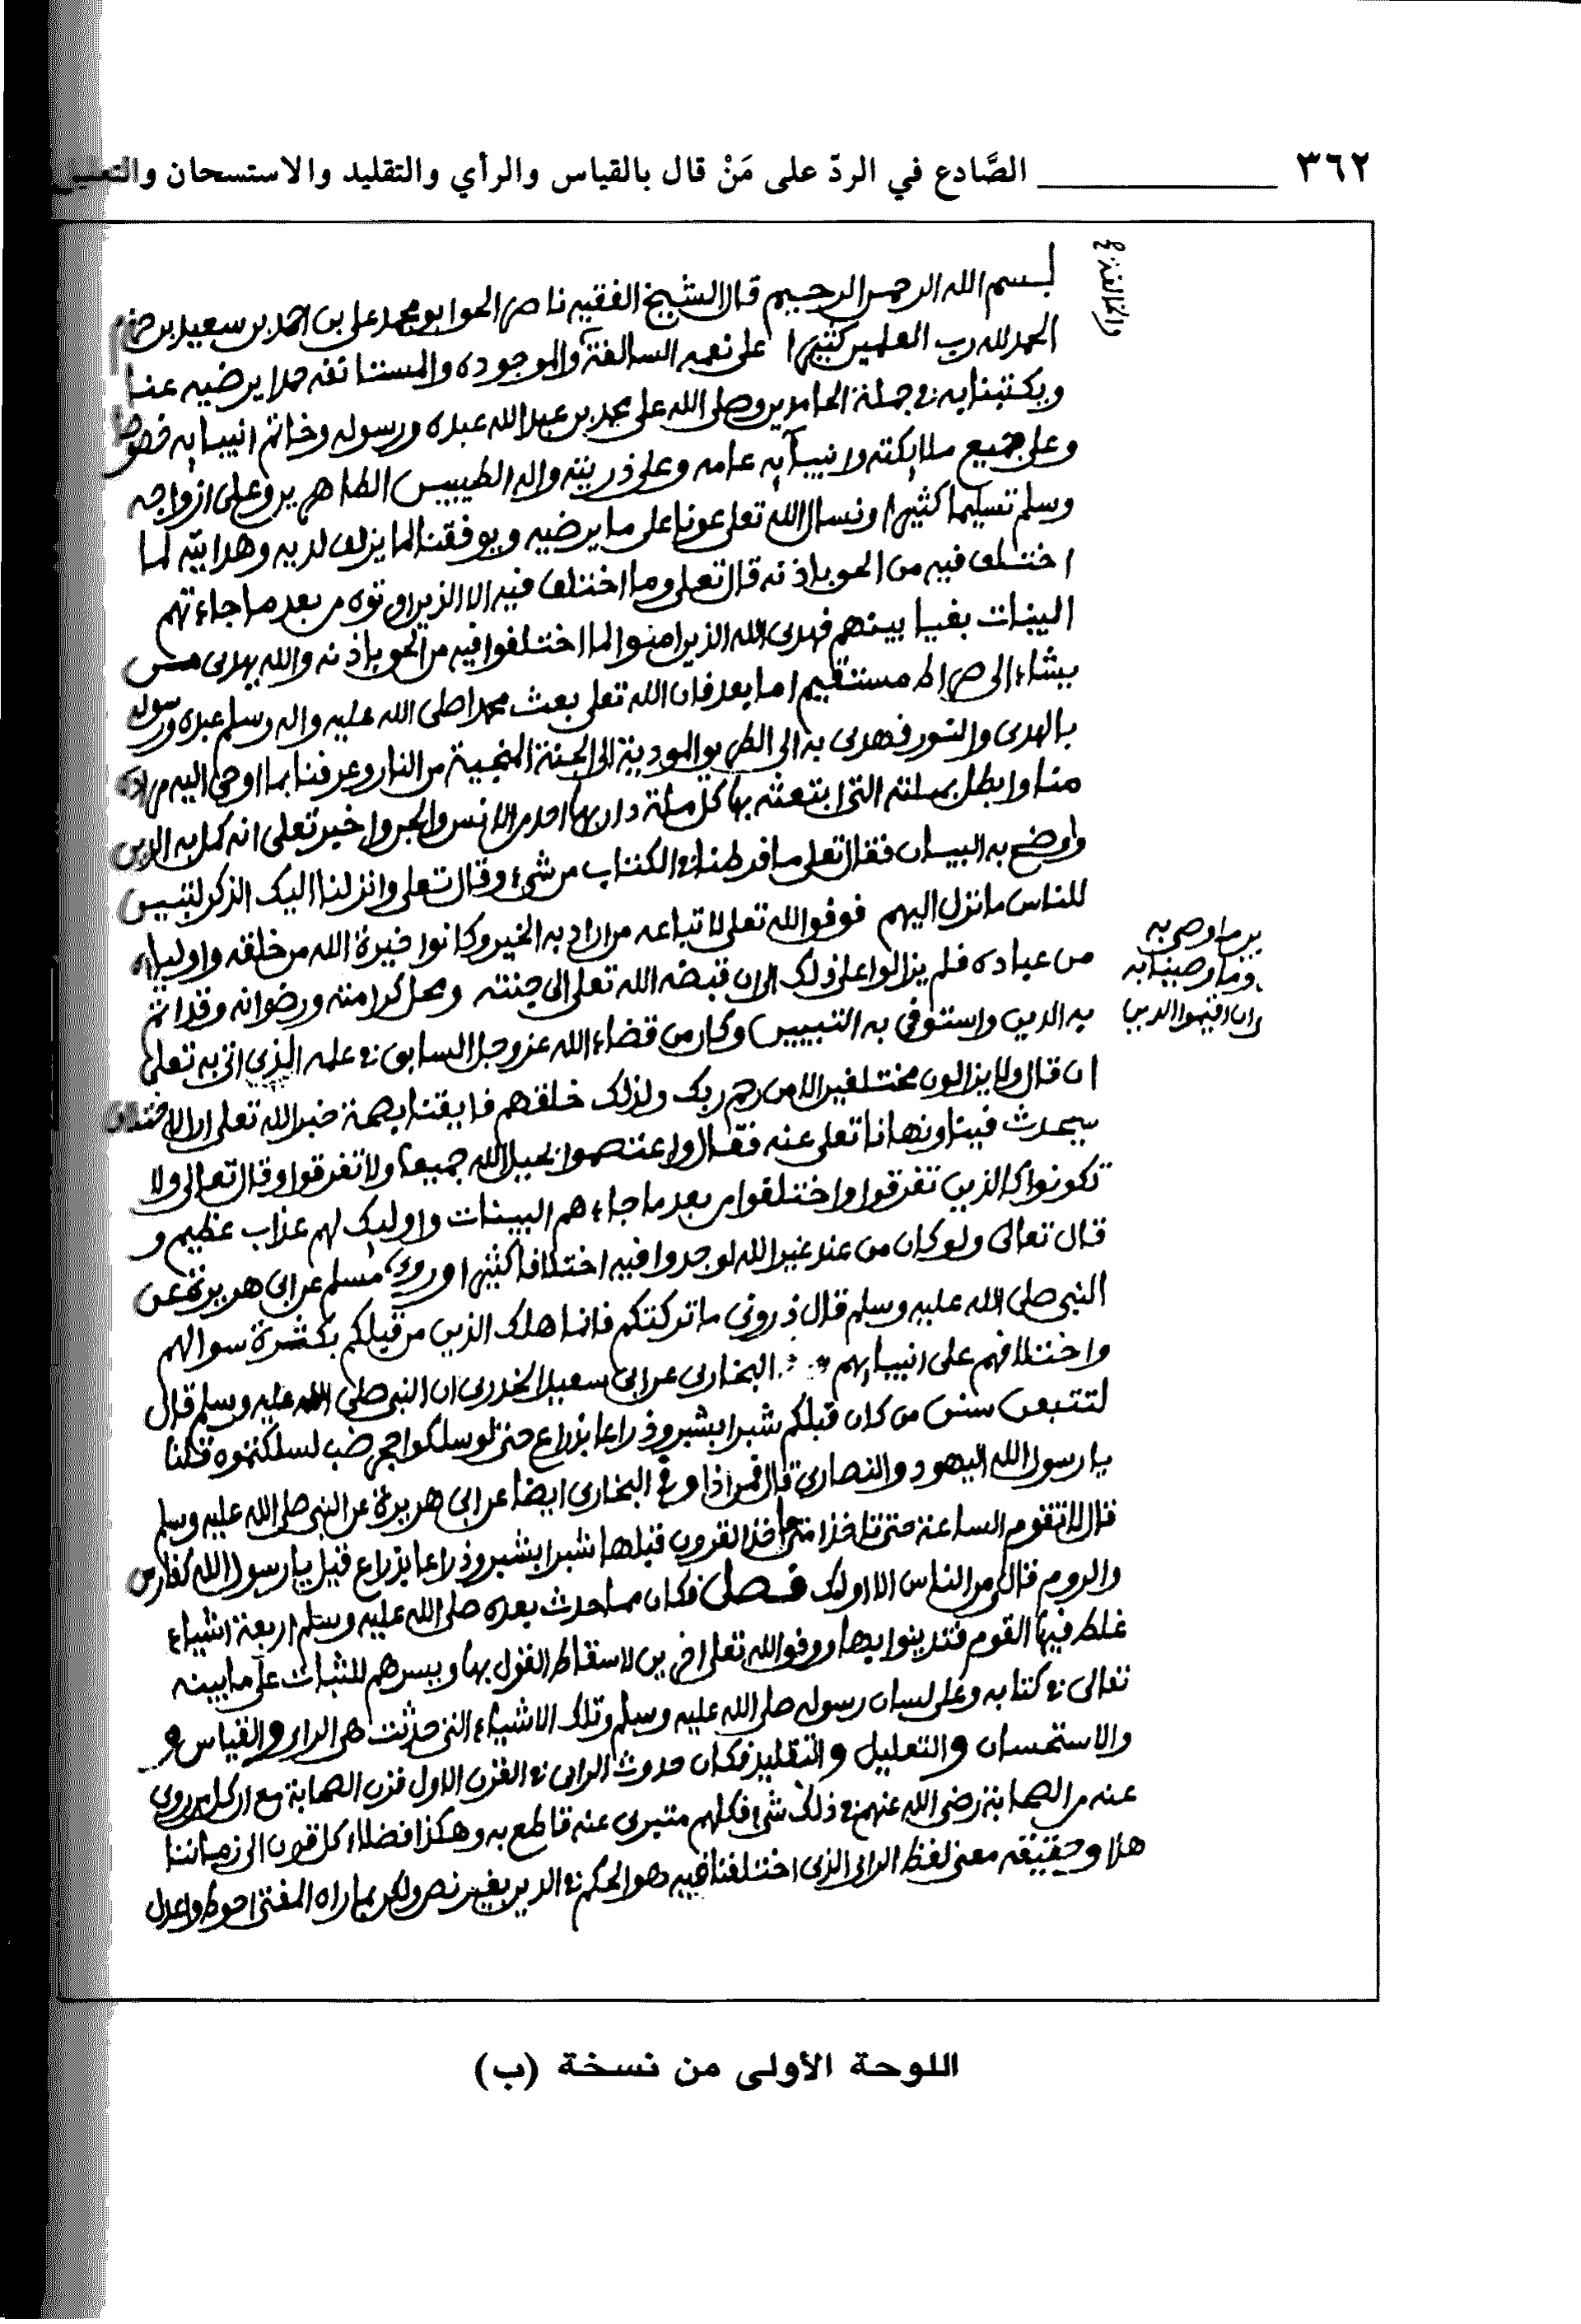 ٣٦٢ الصَّادع في الردّ على مَنْ قال بالقياس والرأي والتقليد والاستسحان والتعليل
بسم الله الرحمن الرحيم قال الشيخ الفقيه ناصر الحق ابو محمد على بن احمد بن سعيد بن حزم
الحمد لله رب العلمين كثيرا على نعمه السالفة والموجوده والمستانفه حمدا يرضيه عنا
ويكتبنا به في جملة الحامدين وصلى الله على محمد بن عبد الله عبده ورسوله وخاتم انبيايه خصوصا
وعلى جميع ملايكته وانبيآيه عامه وعلى ذريته واله الطيبين الطاهرين وعلى ازواجه
وسلم تسليما كثيرا ونسال الله تعلى عونا على ما يرضيه ويوفقنا لما يزلف لديه وهدايته لما
اختلف فيه من الحق باذنه قال تعلى وما اختلف فيه الا الذين اوتوه من بعد ما جاءتهم
البينات بغيا بينهم فهدى الله الذين امنوا لما اختلفوا فيه من الحق باذنه والله يهدى من
يشاء الى صراط مستقيم اما بعد فان الله تعلى بعث محمدا صلى الله عليه واله وسلم عبده ورسوله
بالهدى والنور فهدى به الى الطريق المودية الى الجنة المنجية من النار وعرفنا بما اوحى اليه مراده
منا وابطل بملته التى ابتعثه بها كل ملة دان بها احد من الانس والجن واخبر تعلى انه كمل به الدين
واوضح به البيان فقال تعلى ما فرطنا في الكتاب من شىء وقال تعلى وانزلنا اليك الذكر لتبين
للناس ما نزل اليهم فوفق الله تعلى لاتباعه من اراد به الخير وكانوا خيرة الله من خلقه واولياءه
من عباده فلم يزالوا على ذلك الى ان قبضه الله تعلى الى جنته ومحل كرامته ورضوانه وقد اتم
به الدين واستوفى به التبيين وكان من قضاء الله عز وجل السابق في علمه الذى اتى به تعلى
ان قال ولا يزالون مختلفين الا من رحم ربك ولذلك خلقهم فايقنا بصحة خبر الله تعلى ان الاختلاف
سيحدث فينا ونهانا تعلى عنه فقال واعتصموا بحبل الله جميعا ولا تفرقوا وقال تعالى ولا
تكونوا كالذين تفرقوا واختلفوا من بعد ما جاءهم البينات واوليك لهم عذاب عظيم و
قال تعالى ولو كان من عند غير الله لوجدوا فيه اختلافا كثيرا وروى مسلم عن ابى هريرة عن
النبى صلى الله عليه وسلم قال ذرونى ما تركتكم فانما هلك الذين من قبلكم بكثرة سوالهم
واختلافهم على انبيايهم البخارى عن ابى سعيد الخدرى ان النبى صلى الله عليه وسلم قال
لتتبعن سنن من كان قبلكم شبرا بشبر وذراعا بذراع حتى لو سلكوا جحر ضب لسلكتموه قلنا
يا رسول الله اليهود والنصارى قال فمن اذا وفى البخارى ايضا عن ابى هريرة عن النبى صلى الله عليه وسلم
قال لا تقوم الساعة حتى تاخذ امتى ما اخذ القرون قبلها شبرا بشبر وذراعا بذراع قيل يا رسول الله كفارس
والروم قال ومن الناس الا اوليك فصل فكان مما حدث بعده صلى الله عليه وسلم اربعة اشياء
غلط فيها القوم فتدينوا بها ووفق الله تعلى اخرين لاسقاط القول بها ويسرهم للثبات على ما بينه
تعالى في كتابه وعلى لسان رسوله صلى الله عليه وسلم وتلك الاشياء التى حدثت هى الراى والقياس و
والاستحسان والتعليل والتقليد فكان حدوث الراى في القرن الاول قرن الصحابة مع ان كل من روى
عنه من الصحابة رضى الله عنهم في ذلك شىء فكلهم متبرى عنه قاطع به وهكذا فضلاء كل قرن الى زماننا
هذا وحقيقة معنى لفظ الراى الذى اختلفنا فيه هو الحكم في الدين بغير نص ولكن بما راه المفتى احوط واعدل
ما وصى به
وما وصينا به
ان اقيموا الدين
اللوحة الأولى من نسخة (ب)